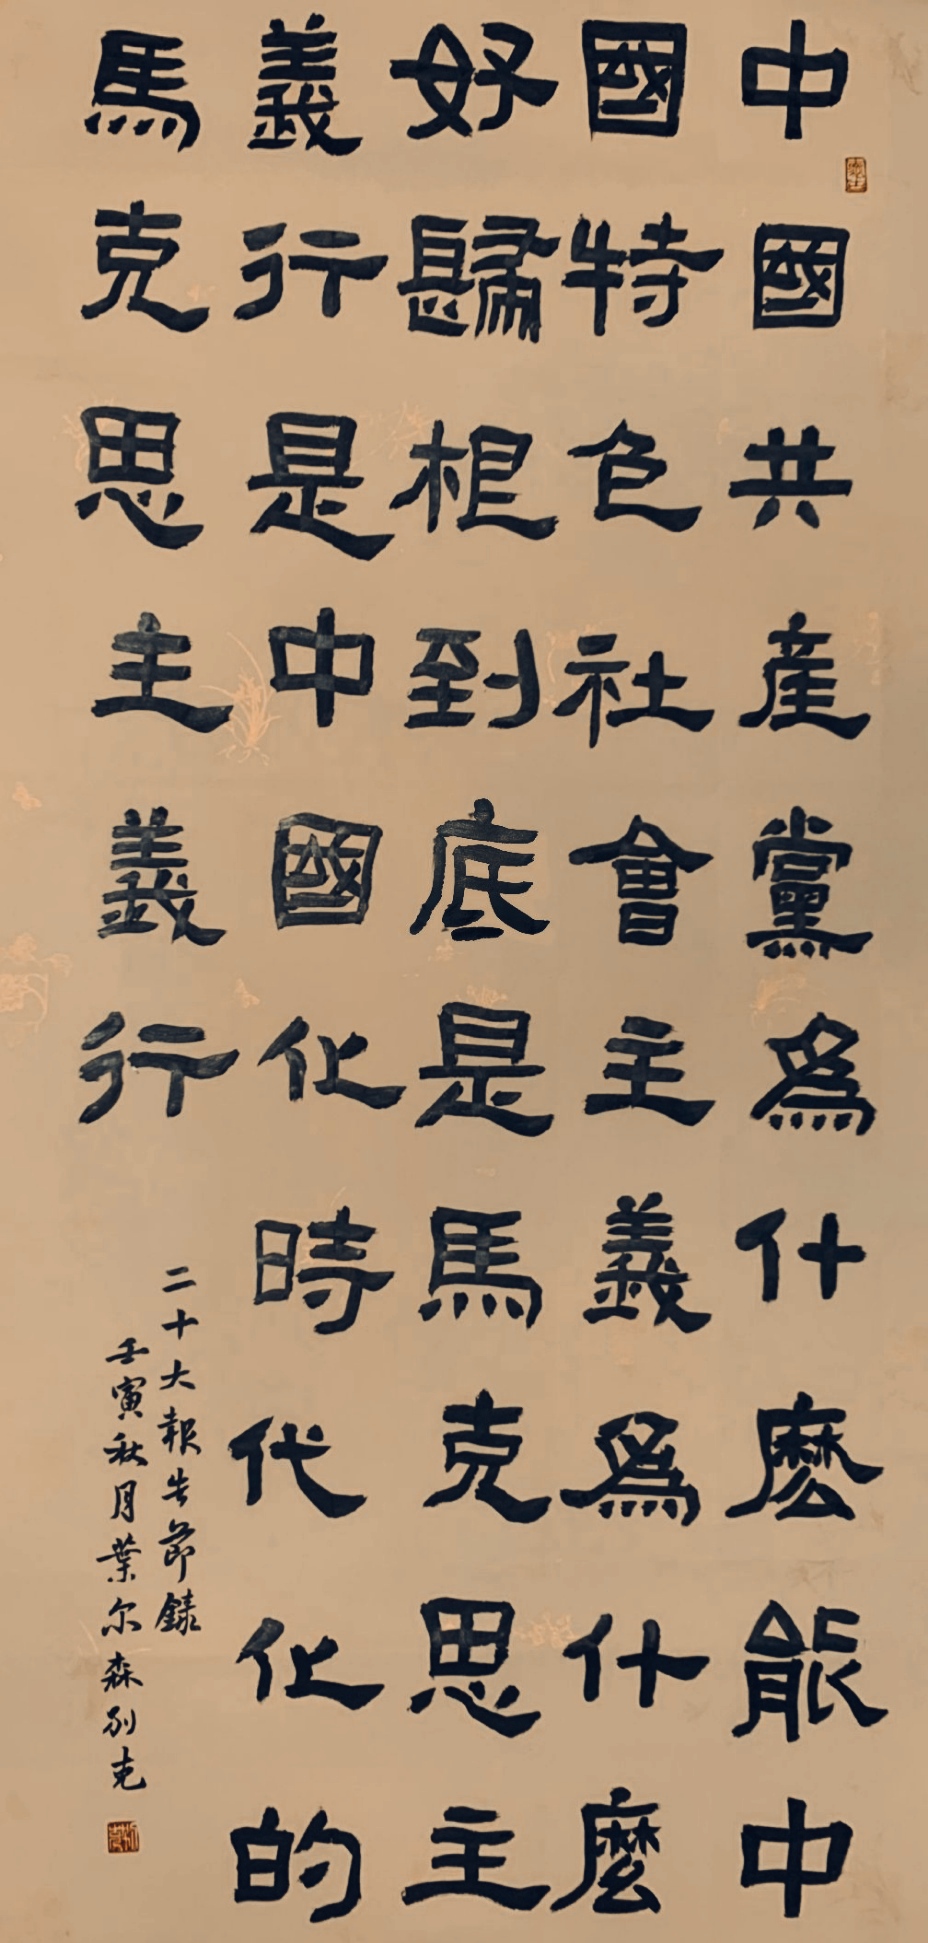 中國共産黨爲什麽能中
國特色社會主義爲什麽
好歸根到底是馬克思主
義行是中國化時代化的
馬克思主義行
二十大報告節録
壬寅秋月葉尔森别克